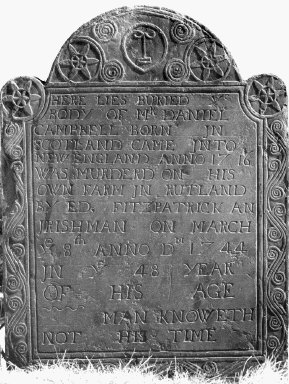 HERE LIES BURIED Yᵉ
BODY OF Mʳ DANIEL
CAMPBELL BORN JN
SCOTLAND CAME JNTO
NEW ENGLAND ANNO 1716
WAS MURDERD ON HIS
OWN FARM JN RUTLAND
BY ED. FITZPATRICK AN
JRISHMAN ON MARCH
Yᵉ 8ᵗʰ ANNO Dᵐ 1744
JN Yᵉ 48 YEARᵉ
OF HIS AGE
MAN KNOWETH
NOT HIS TIME